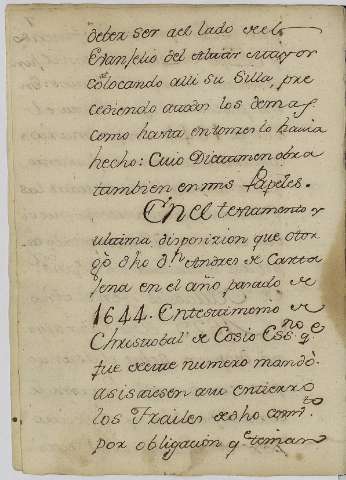 deber ser ael lado de el
Evanjelio del Altar mayor
colocando alli su Silla, pre
cediendo atodos los demas.
como hasta entonces lo havia
hecho: Cuio Dictamen obra
tambien en mis Papeles.
En el testamento y
ultima disposizion que otor
gò dho d.n Andres de Carta
jena en el año pasado de
1644. En testimonio de
Christobal de Cosio Ess.no q.e
fue de este numero mandò.
asistiesen a su entierro
los Frailes de dho comb.to
por obligación q.e tenian